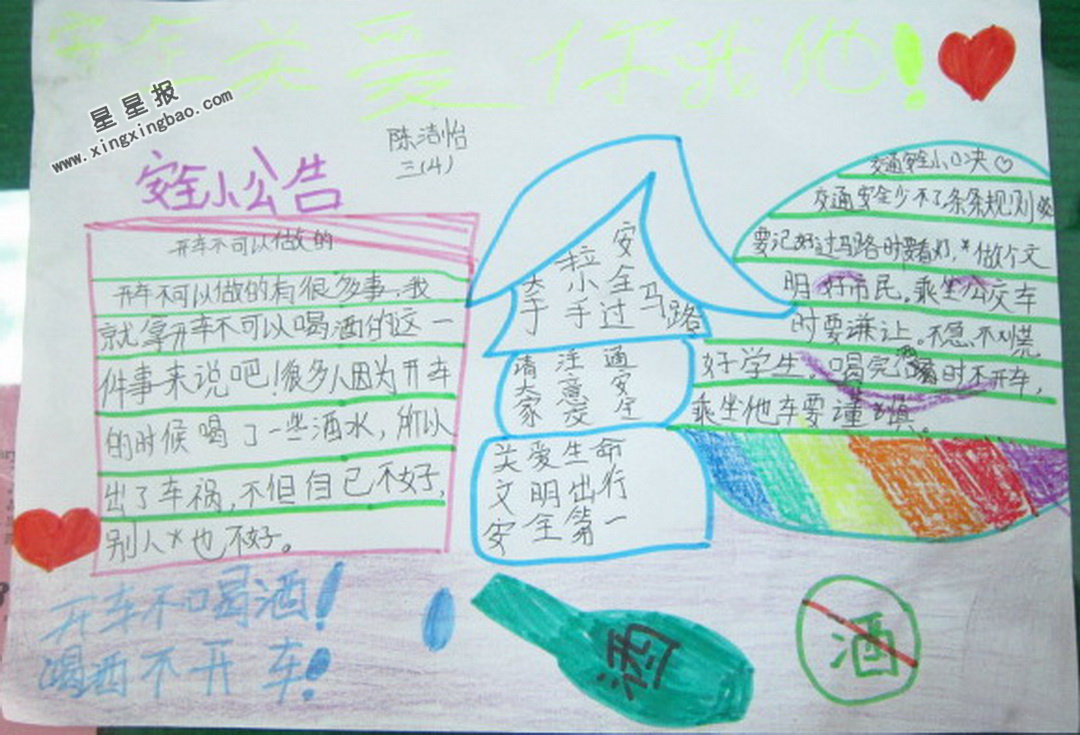 安全关爱你我他!
星星报
www.xingxingbao.com
陈洁怡
三(4)
安全小公告
开车不可以做的
开车不可以做的有很多事,我
就拿开车不可以喝酒的这一
件事来说吧!很多人因为开车
的时候喝了一些酒水,所以
出了车祸,不但自己不好,
别人*也不好。
大手拉小手
安全过马路
请大家注意交通安全
关爱生命
文明出行
安全第一
交通安全小口决♡
交通安全少不了条条规则
要记好过马路时要看灯,*做个文
明好市民。乘坐公交车
时要谦让。不急不慌
好学生,喝完酒时不开车,
乘坐他车要谨慎。
开车不喝酒!
喝酒不开车!
酒
酒